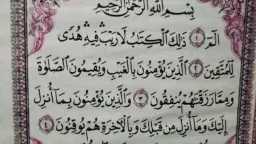 بِسْمِ اللَّهِ الرَّحْمَٰنِ الرَّحِيمِ
الٓمٓ ۝١ ذَٰلِكَ الْكِتَٰبُ لَا رَيْبَ فِيهِ هُدًى
لِّلْمُتَّقِينَ ۝٢ الَّذِينَ يُؤْمِنُونَ بِالْغَيْبِ وَيُقِيمُونَ الصَّلَوٰةَ
وَمِمَّا رَزَقْنَٰهُمْ يُنفِقُونَ ۝٣ وَالَّذِينَ يُؤْمِنُونَ بِمَا أُنزِلَ
إِلَيْكَ وَمَا أُنزِلَ مِن قَبْلِكَ وَبِالْآخِرَةِ هُمْ يُوقِنُونَ ۝٤